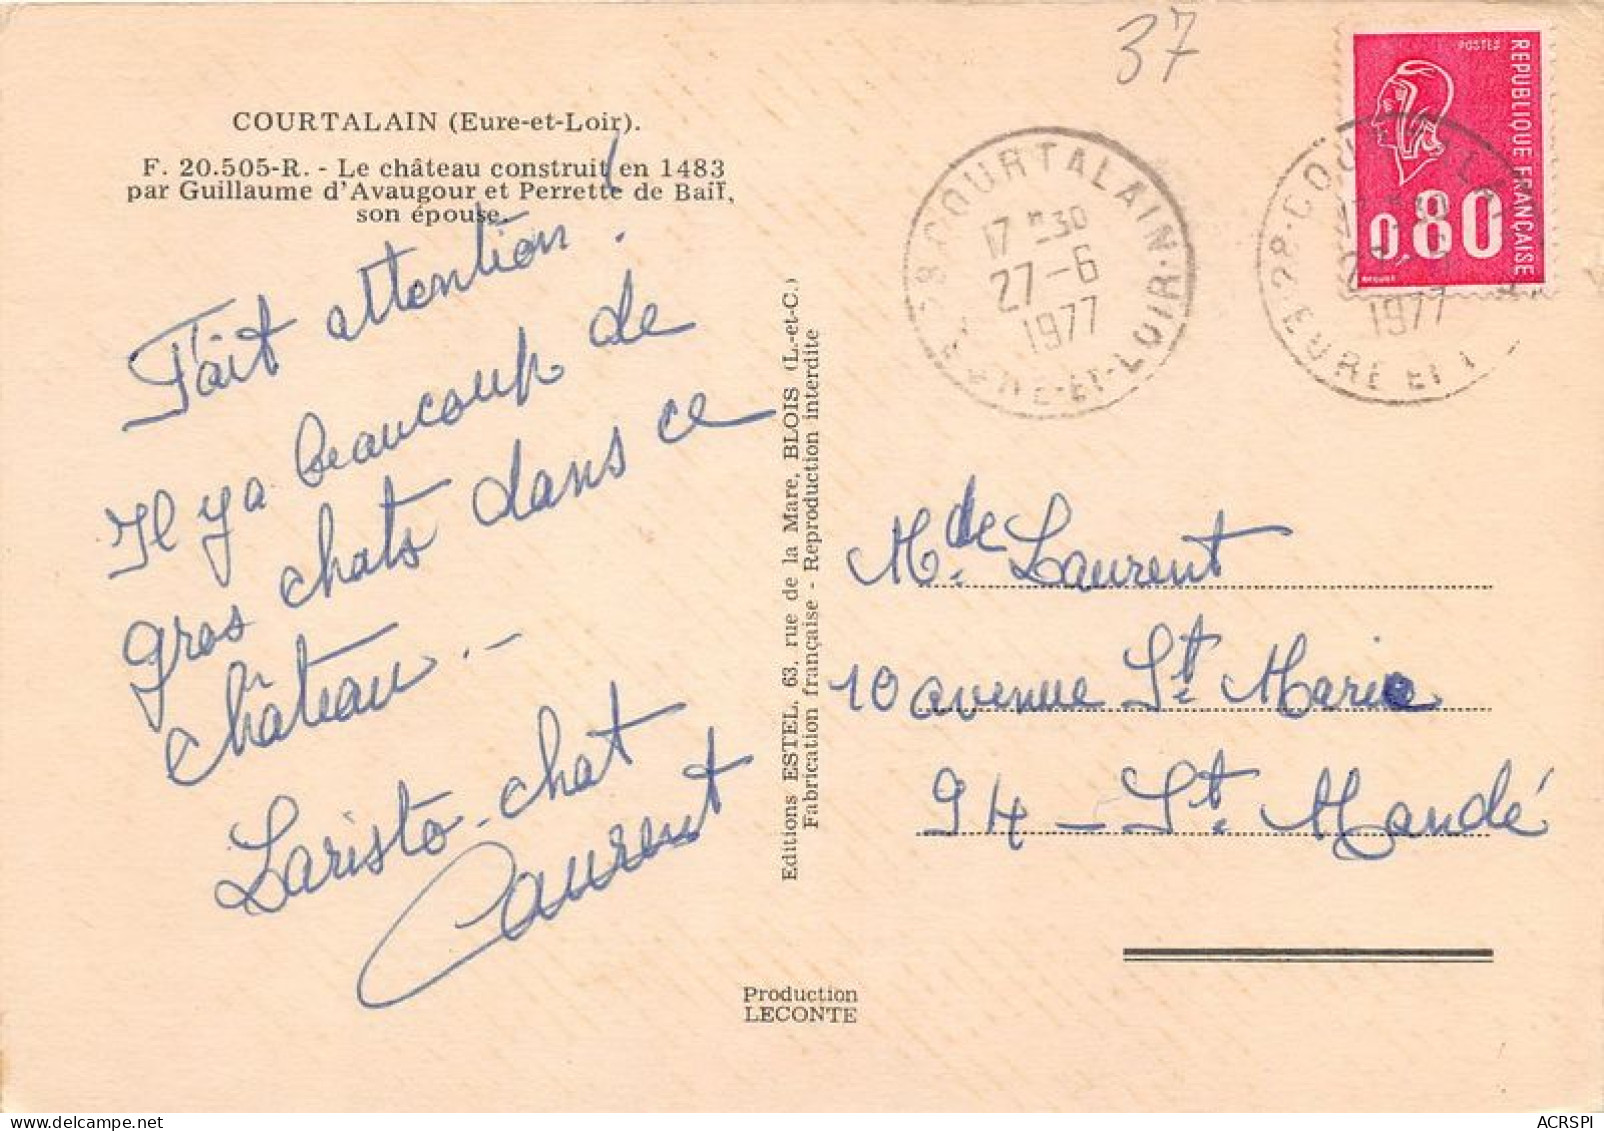 37
COURTALAIN (Eure-et-Loir).
F. 20.505-R. - Le château construit en 1483
par Guillaume d'Avaugour et Perrette de Baïf,
son épouse.
Fait attention !
Il y a beaucoup de
gros chats dans ce
château..-
Laristo-chat
Laurent
Editions ESTEL, 63, rue de la Mare, BLOIS (L.-et-C.)
Fabrication française - Reproduction interdite
Production
LECONTE
28 COURTALAIN
17 H 30
27-6
1977
EURE-ET-LOIR
POSTES
REPUBLIQUE FRANÇAISE
0,80
BEQUET
28 - COURTALAIN
1977
EURE ET L
Mde Laurent
10 avenue St. Marie
94 - St. Mandé
ACRSPI